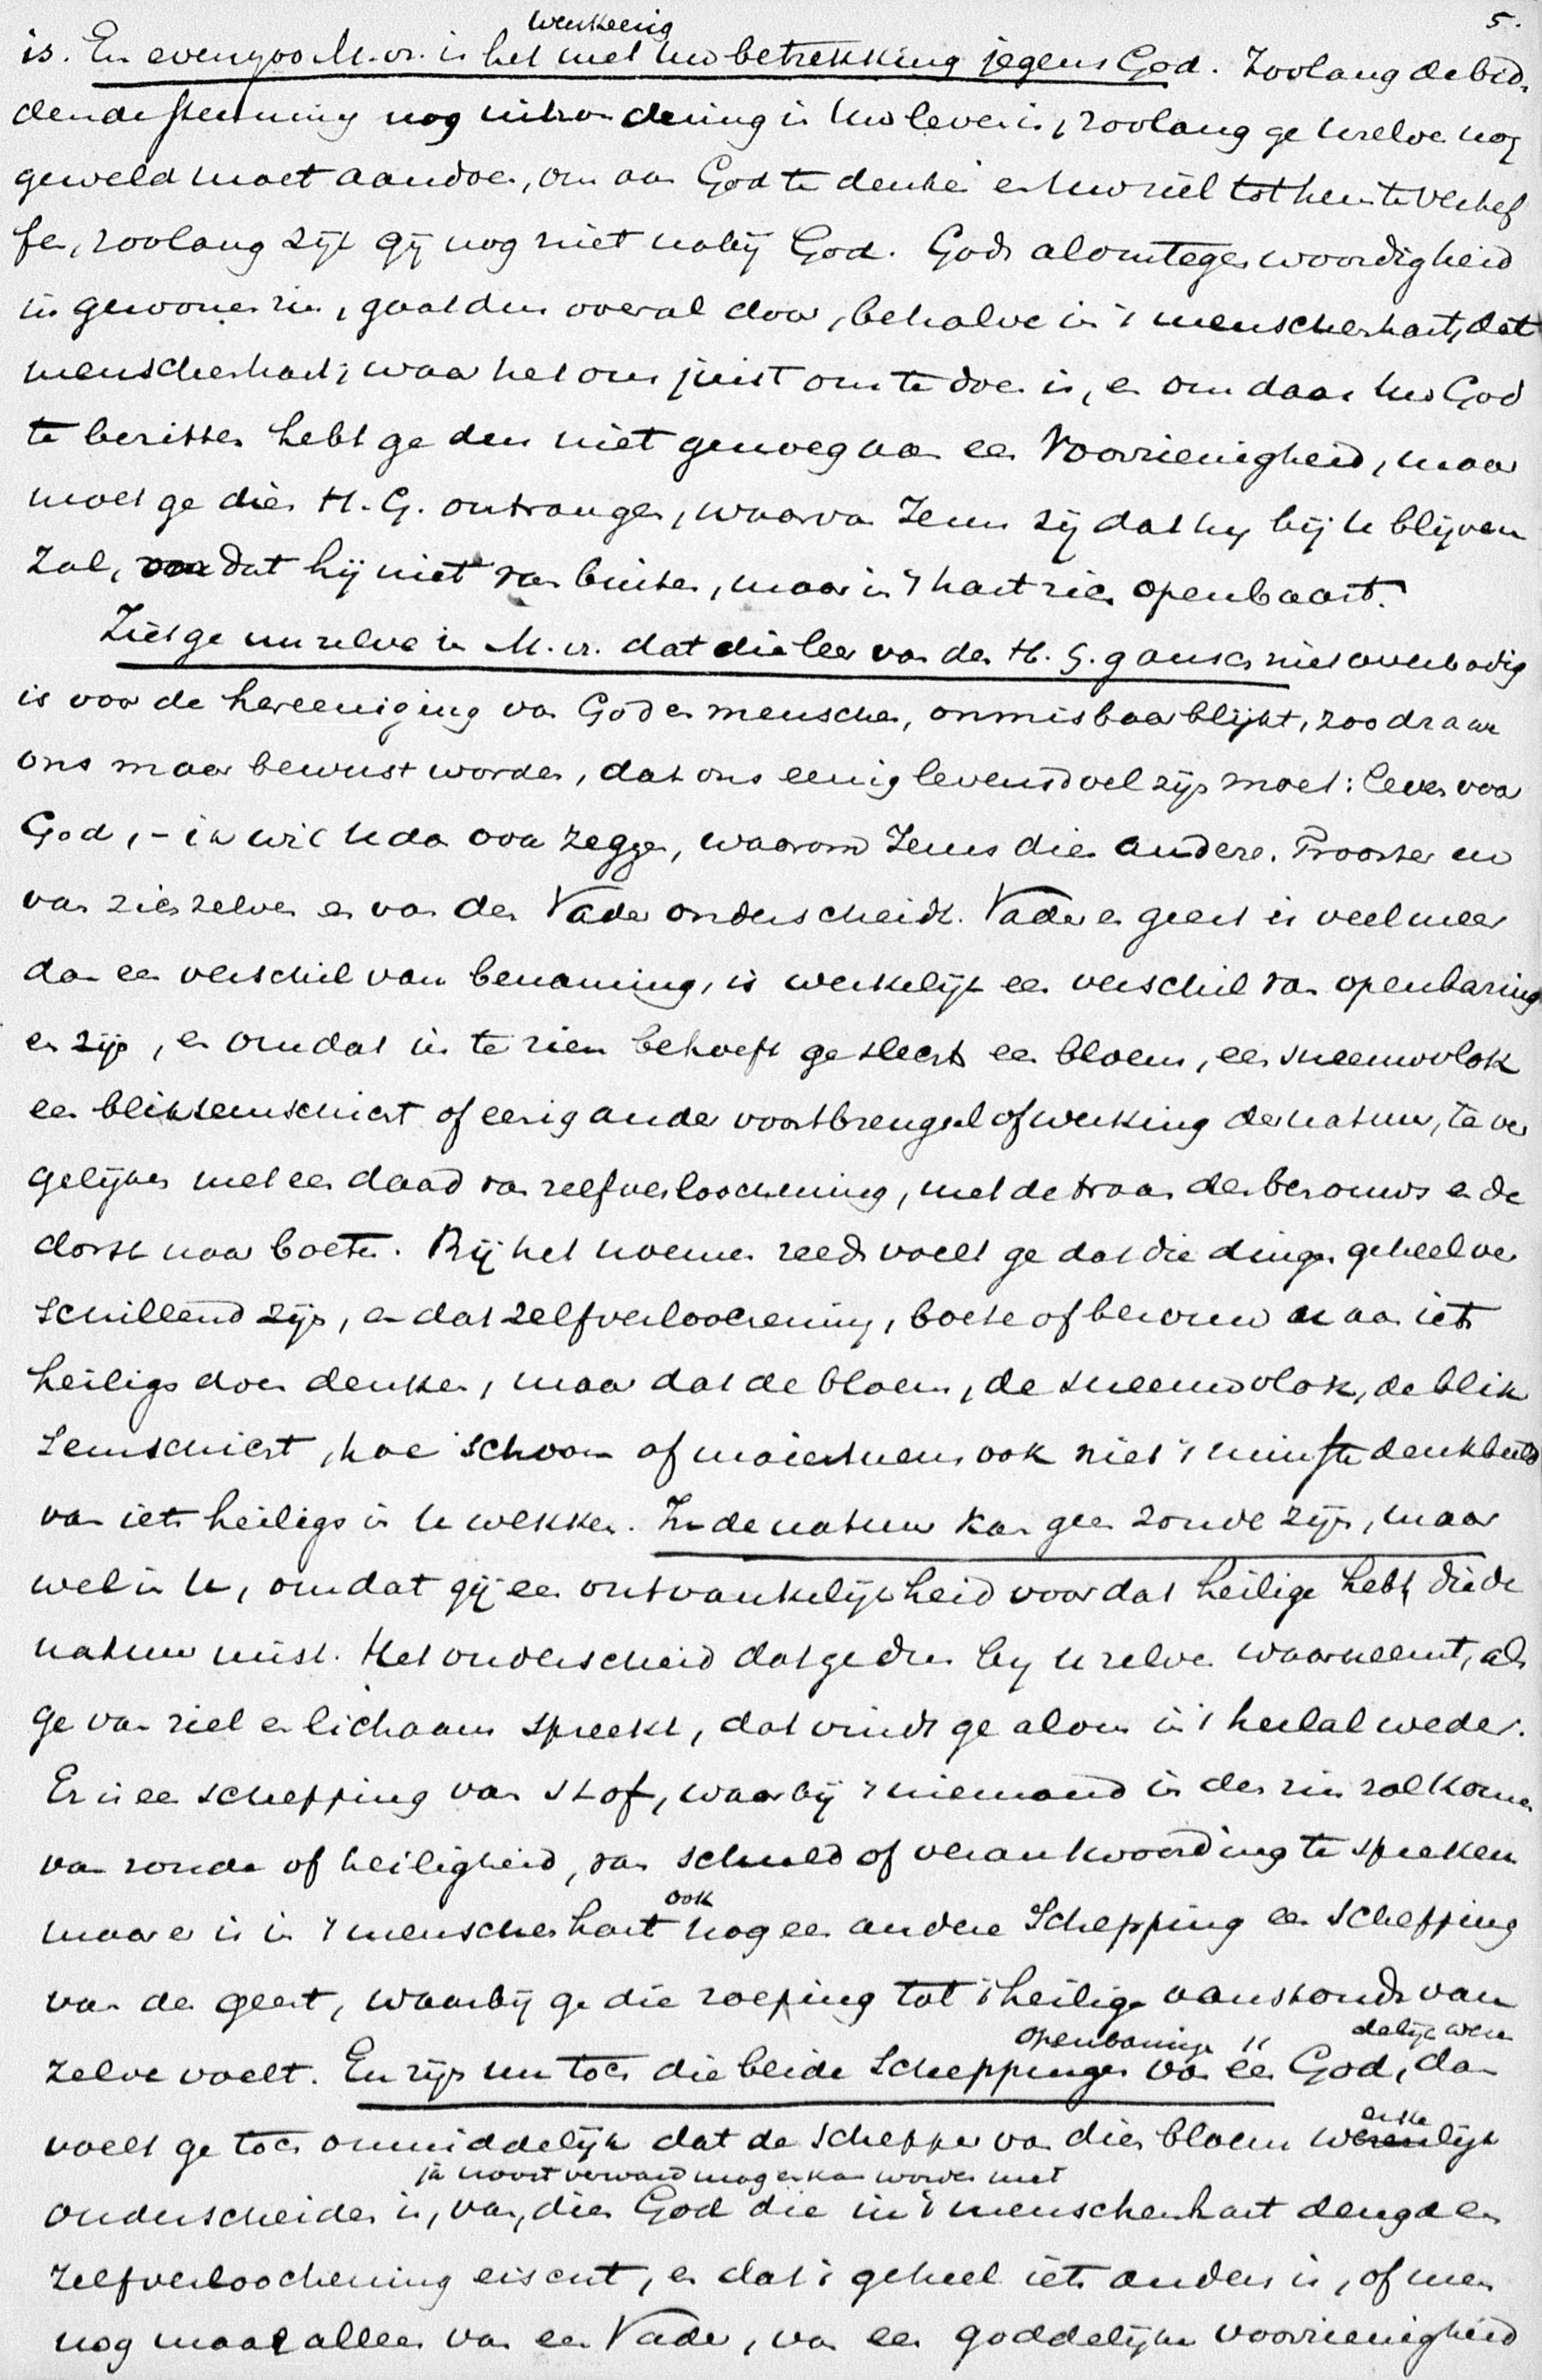 5.
werkeenig
is. En evenzoo M. vr. is het met uw betrekking jegens God. Zoolang de bid-
dende stemming nog uitzondering in uw leven is, zoolang ge uzelve nog
geweld moet aandoen, om aan God te denken en uw ziel tot hem te verhef
fen, zoolang zijt gij nog niet nabij God. Gods alomtegenwoordigheid
in gewonen zin, gaat dus overal door, behalve in 't menschenhart, dat
menschenhart, waar het ons juist om te doen is, en om daar uw God
te bezitten hebt ge dus niet genoeg aan een Voorzienigheid, maar
moet ge dien H. G. ontvangen, waarvan Jezus zij dat hij bij u blijven
zal, dat hij niet van buiten, maar in 't hart zich openbaart.
Ziet ge nu zelve in M. vr. dat die leer van den H. G. gansch niet overbodig
is voor de hereeniging van God en menschen, onmisbaar blijkt, zoodra we
ons maar bewust worden, dat ons eenig levensdoel zijn moet: leven voor
God, - ik wil u dan ook zeggen, waarom Jezus dien anderen Trooster en
van zich zelven en van den Vader onderscheidt. Vader en geest is veel meer
dan een verschil van benaming, is werkelijk een verschil van openbaring
en zijn, en om dat in te zien behoeft ge slechts een bloem, een sneeuwvlok
een bliksemschicht of eenig ander voortbrengsel of werking der natuur, te ver
gelijken met een daad van zelfverloochening, met de traan des berouws en de
dorst naar boete. Bij het noemen reeds voelt ge dat die dingen geheel ver
schillend zijn, en dat zelfverloochening, boete of berouw u aan iets
heiligs doen denken, maar dat de bloem, de sneeuwvlok, de blik
semschicht, hoe schoon of majestueus ook niet 't minste denkbeeld
van iets heiligs in u wekken. In de natuur kan geen zonde zijn, maar
wel in u, omdat gij een ontvankelijkheid voor dat heilige hebt, die de
natuur mist. Het onderscheid dat ge dus bij u zelve waarneemt, als
ge van ziel en lichaam spreekt, dat vindt ge alom in 't heelal weder.
Er is een schepping van stof, waarbij 't niemand in den zin zal komen
van zonde of heiligheid, van schuld of verantwoording te spreken
ook
maar er is in 't menschenhart nog een andere Schepping een schepping
van den geest, waarbij ge die roeping tot 't heilige aanstonds van
openbaringen
zelve voelt. En zijn nu toch die beide Scheppingen van één God, dan
voelt ge toch onmiddelijk dat de schepper van dien bloem wezenlijk
ja nooit verward mag en kan worden met
onderscheiden is, van, dien God die in 't menschenhart deugd en
zelfverloochening eischt, en dat 't geheel iets anders is, of men
nog maar alleen van een Vader, van een goddelijke voorzienigheid